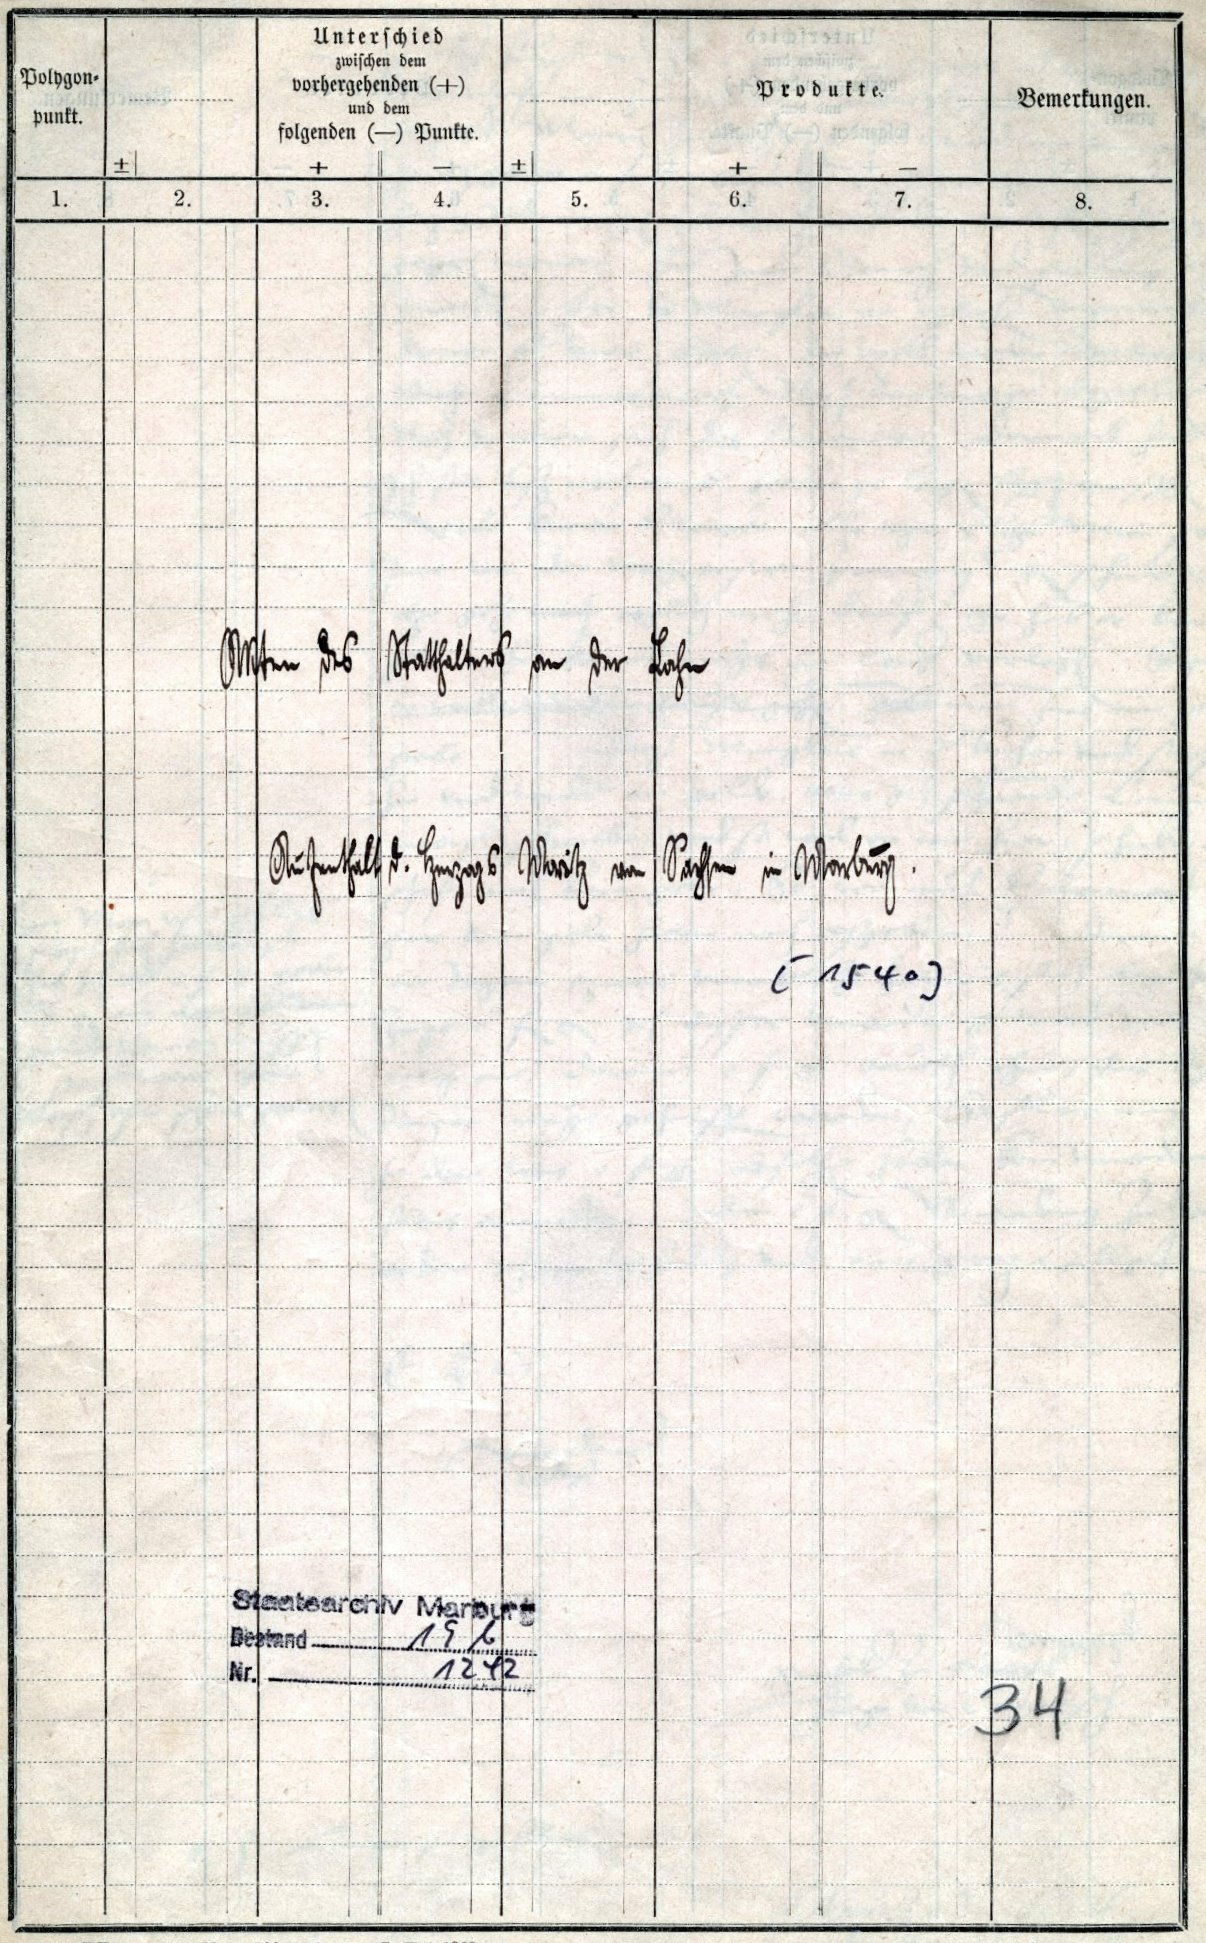 Polygon-
punkt.
Unterschied
zwischen dem
vorhergehenden (+)
und dem
folgenden (—) Punkte.
Produkte.
Bemerkungen.
± + — ± + —
1. 2. 3. 4. 5. 6. 7. 8.
Akten des Statthalters an der Lahn
Aufenthalt d. Herzogs Moritz von Sachsen in Marburg.
[1540]
Staatsarchiv Marburg
Bestand 19 b
Nr. 1242
34